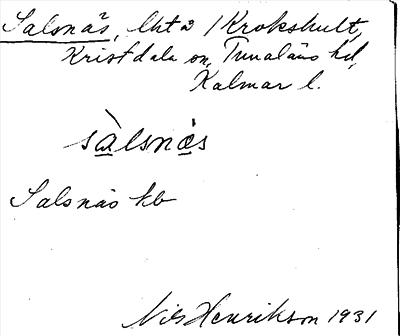 Salsnäs, lht 2 / Krokshult,
Kristdala sn, Tunaläns hd,
Kalmar l.
sàlsnä̀s
Salsnäs kb
Nils Henrikson 1931